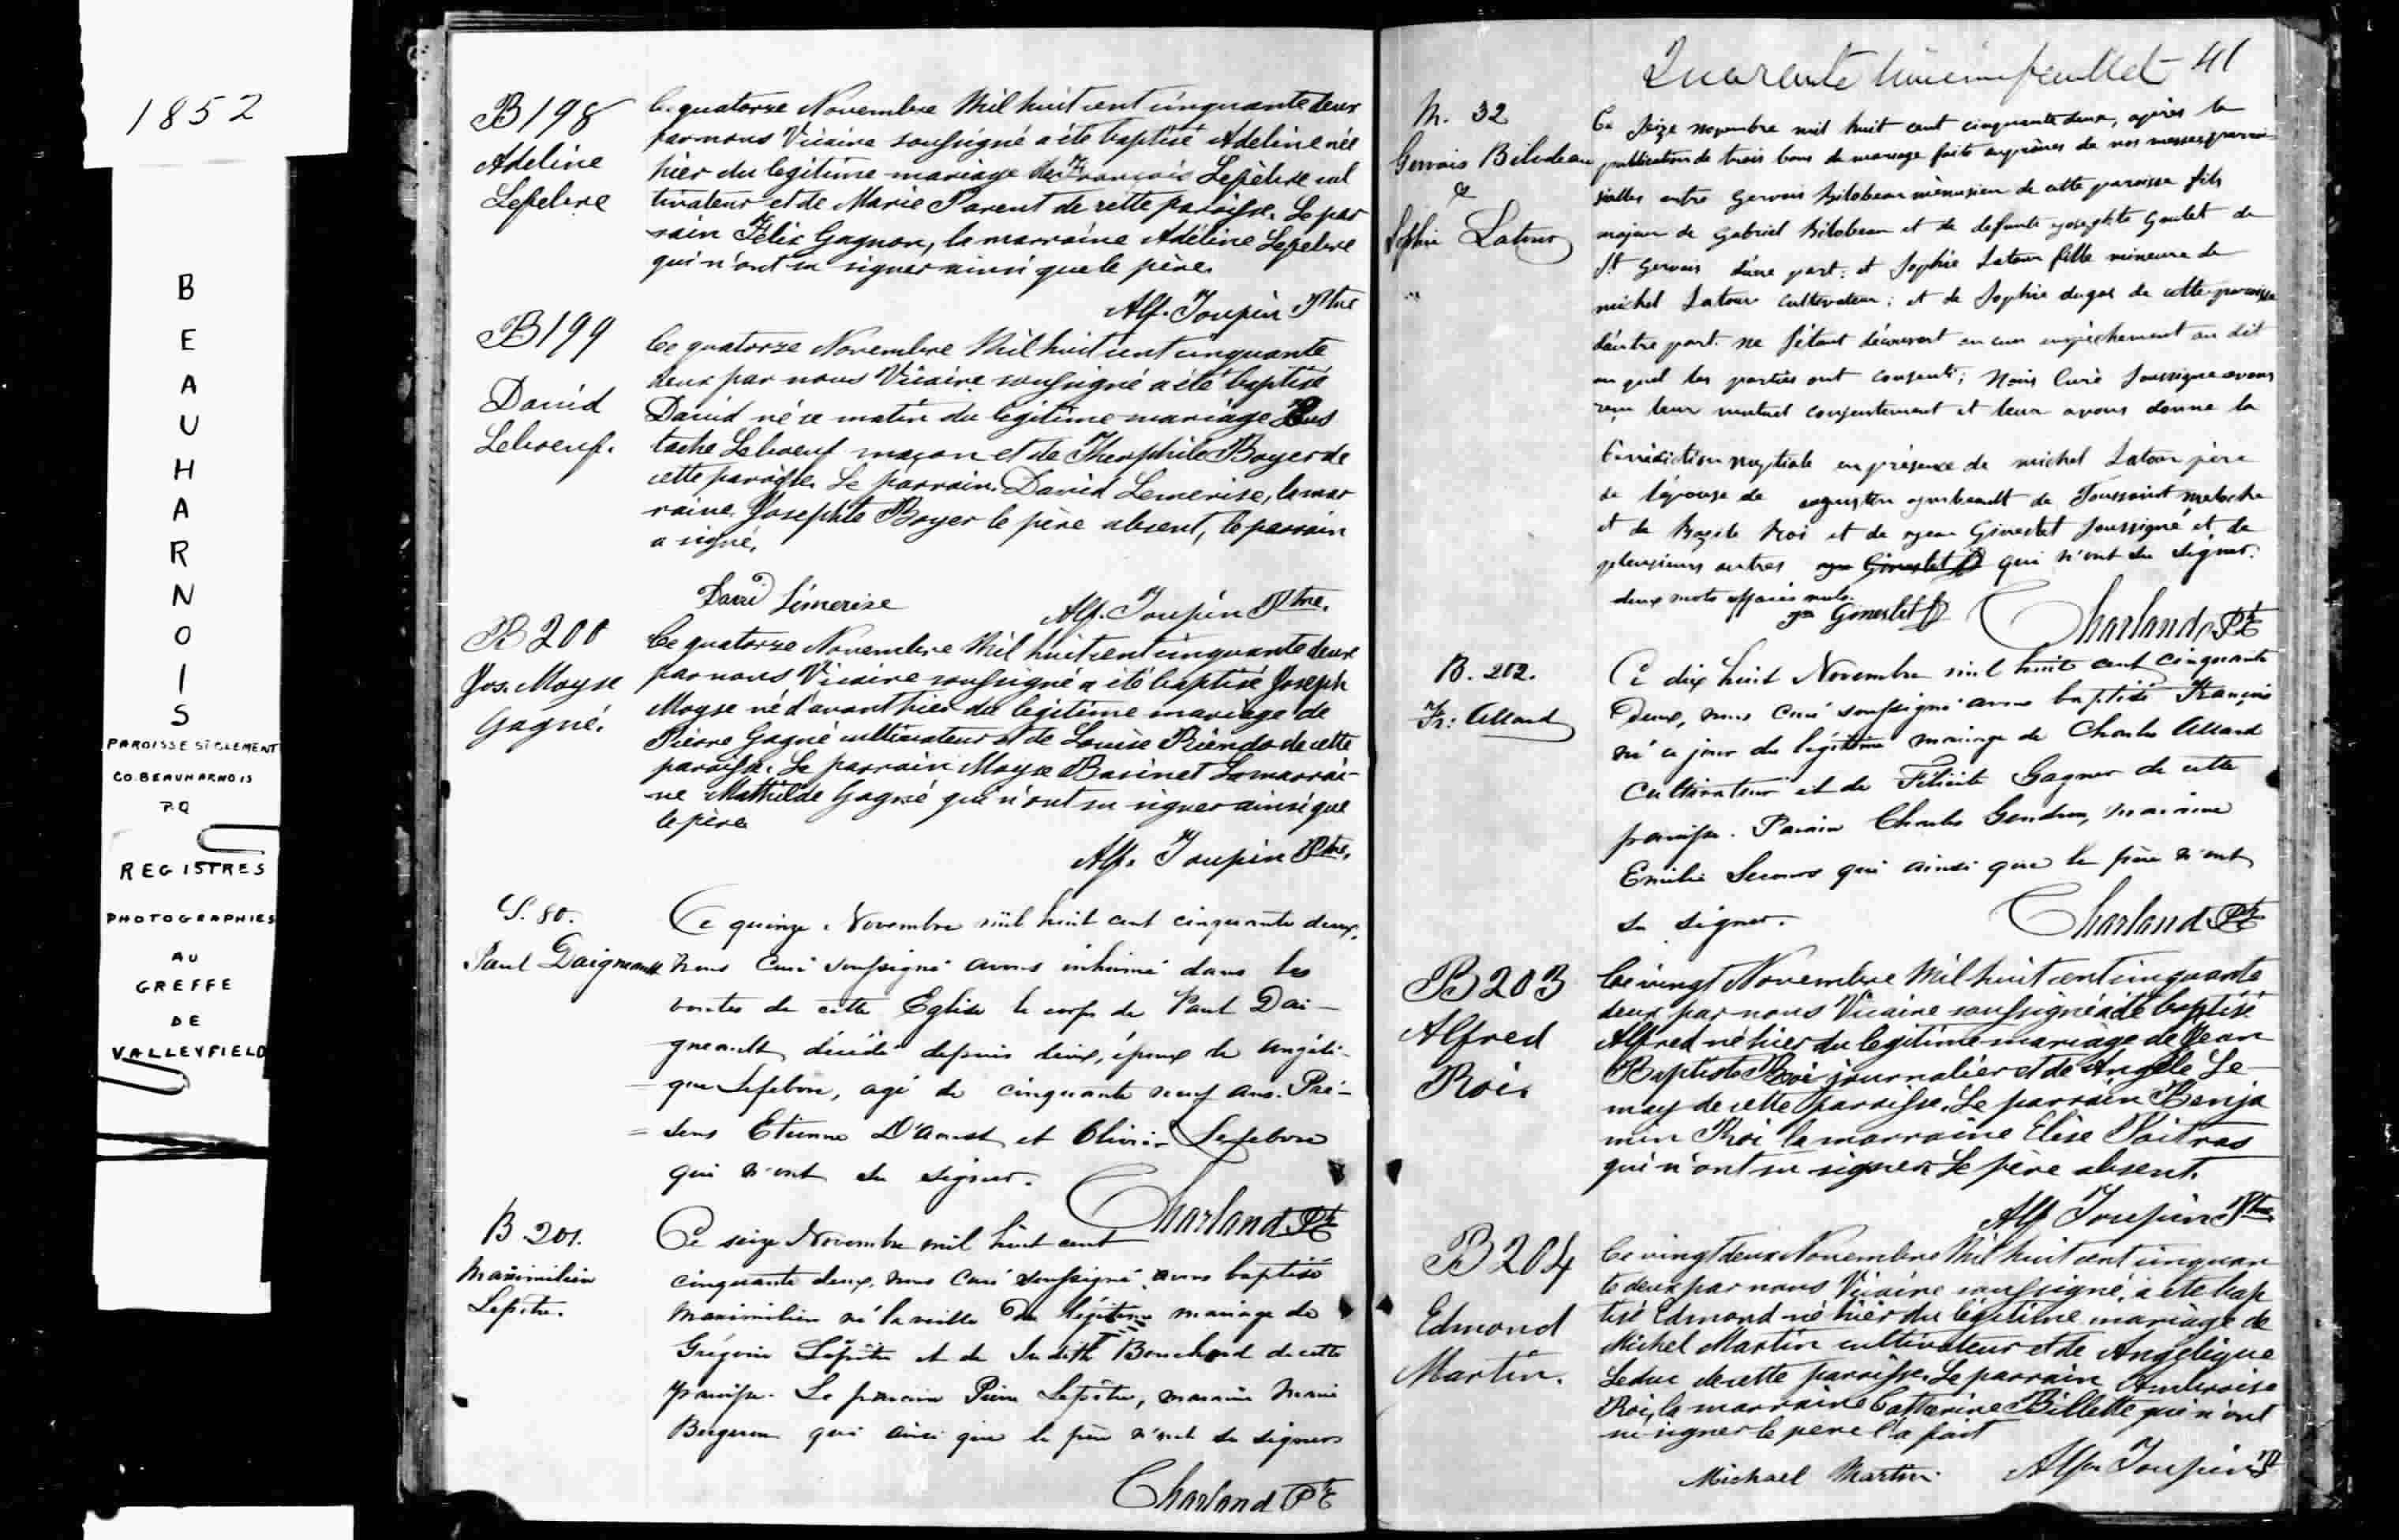 1852
B
E
A
U
H
A
R
N
O
I
S
PAROISSE ST CLEMENT
CO. BEAUHARNOIS
P.Q
REGISTRES
PHOTOGRAPHIES
AU
GREFFE
DE
VALLEYFIELD
B198
Adeline
Lefebvre
Ce quatorze Novembre Mil huit cent cinquante deux
par nous Vicaire soussigné a été baptisé Adeline née
hier du legitime mariage de François Lefebvre cul
tivateur et de Marie Parent de cette paroisse. Le par
rain Félix Gagnon, la marraine Adéline Lefebvre
qui n'ont su signer ainsi que le père.
Alf. Toupin Ptre
B199
David
Leboeuf.
Ce quatorze Novembre Mil huit cent cinquante
deux par nous Vicaire soussigné a été baptisé
David né ce matin du légitime mariage Eus
tache Leboeuf maçon et de Théophile Boyer de
cette paroisse. Le parrain David Lemerise, la mar
raine Josephte Boyer le père absent, le parrain
a signé.
David Limerise
Alf. Toupin Ptre.
B200
Jos. Moyse
Gagné.
Ce quatorze Novembre Mil huit cent cinquante deux
par nous Vicaire soussigné a été baptisé Joseph
Moyse né d'avant hier du légitime mariage de
Pierre Gagné cultivateur et de Louise Riendo de cette
paroisse. Le parrain Moyse Basinet La marrai-
ne Mathilde Gagné qui n'ont su signer ainsi que
le père
Alf. Toupin Ptre.
S. 80.
Paul Daigneault
Ce quinze Novembre mil huit cent cinquante deux,
Nous Curé soussigné avons inhumé dans les
voutes de cette Eglise le corps de Paul Dai-
gneault, décédé depuis deux, époux de Angéli-
que Lefebvre, agé de cinquante neuf ans. Pré-
sens Etienne D'Aoust et Olivier Lefebvre
qui n'ont su signer.
Charland Pt
B. 201.
Maximilien
Lepitre.
Ce seize Novembre mil huit cent
cinquante deux, nous Curé soussigné avons baptisé
Maximilien né la veille du légitime mariage de
Grégoire Lepitre et de Judith Bouchard de cette
paroisse. Le parrain Pierre Lepitre, marraine Marie
Bergeron qui ainsi que le père n'ont su signer
Charland Pt
Quarante unième feuillet 41
M. 32
Gervais Bilodeau
&
Sophie Latour
Ce seize novembre mil huit cent cinquante deux, après la
publication de trois bans de mariage faite au prônes de nos messes parois
sialles entre Gervais Bilobeau ménusier de cette paroisse fils
majeur de Gabriel Bilobeau et de defunte Josephte Goulet de
St Gervais d'une part; et Sophie Latour fille mineure de
michel Latour cultivateur; et de Sophie dugas de cette paroisse
d'autre part. ne s'étant découvert aucun empêchement au dit
au quel les parties ont consenti; Nous Curé Soussigné avons
reçu leur mutuel consentement et leur avons donné la
bénédiction nuptiale en présence de michel Latour père
de l'épouse de augustin de Toussaint meloche
et de Bazile Roi et de Jean Ginestet soussigné et de
plusieurs autres Jn Ginestet qui n'ont su signer.
deux mots effacés nuls.
Jn Ginestet
Charland, Pt
B. 202.
Fr: Allard
Ce dix huit Novembre mil huit cent cinquante
Deux, nous Curé soussigné avons baptisé François
né ce jour du légitime mariage de Charles Allard
Cultivateur et de Félicité Gagner de cette
paroisse. Parain Charles Gendron, maraine
Emilie Secours qui ainsi que le père n'ont
su signer.
Charland Pt
B203
Alfred
Roi.
Ce vingt Novembre Mil huit cent cinquante
deux par nous Vicaire soussigné a été baptisé
Alfred né hier du legitime mariage de Jean
Baptiste Roi journalier et de Angèle Le-
may de cette paroisse. Le parrain Benja
min Roi la marraine Elise Poitras
qui n'ont su signer. Le père absent.
Alf Toupin Ptre.
B204
Edmond
Martin.
Ce vingt deux Novembre Mil huit cent cinquan
te deux par nous Vicaire soussigné, a été bap
tisé Edmond né hier du légitime mariage de
Michel Martin cultivateur et de Angélique
Leduc de cette paroisse. Le parrain Ambroise
Roi, la marraine Catherine Billette qui n'ont
su signer le père l'a fait
Michael Martin
Alf Toupin Pt